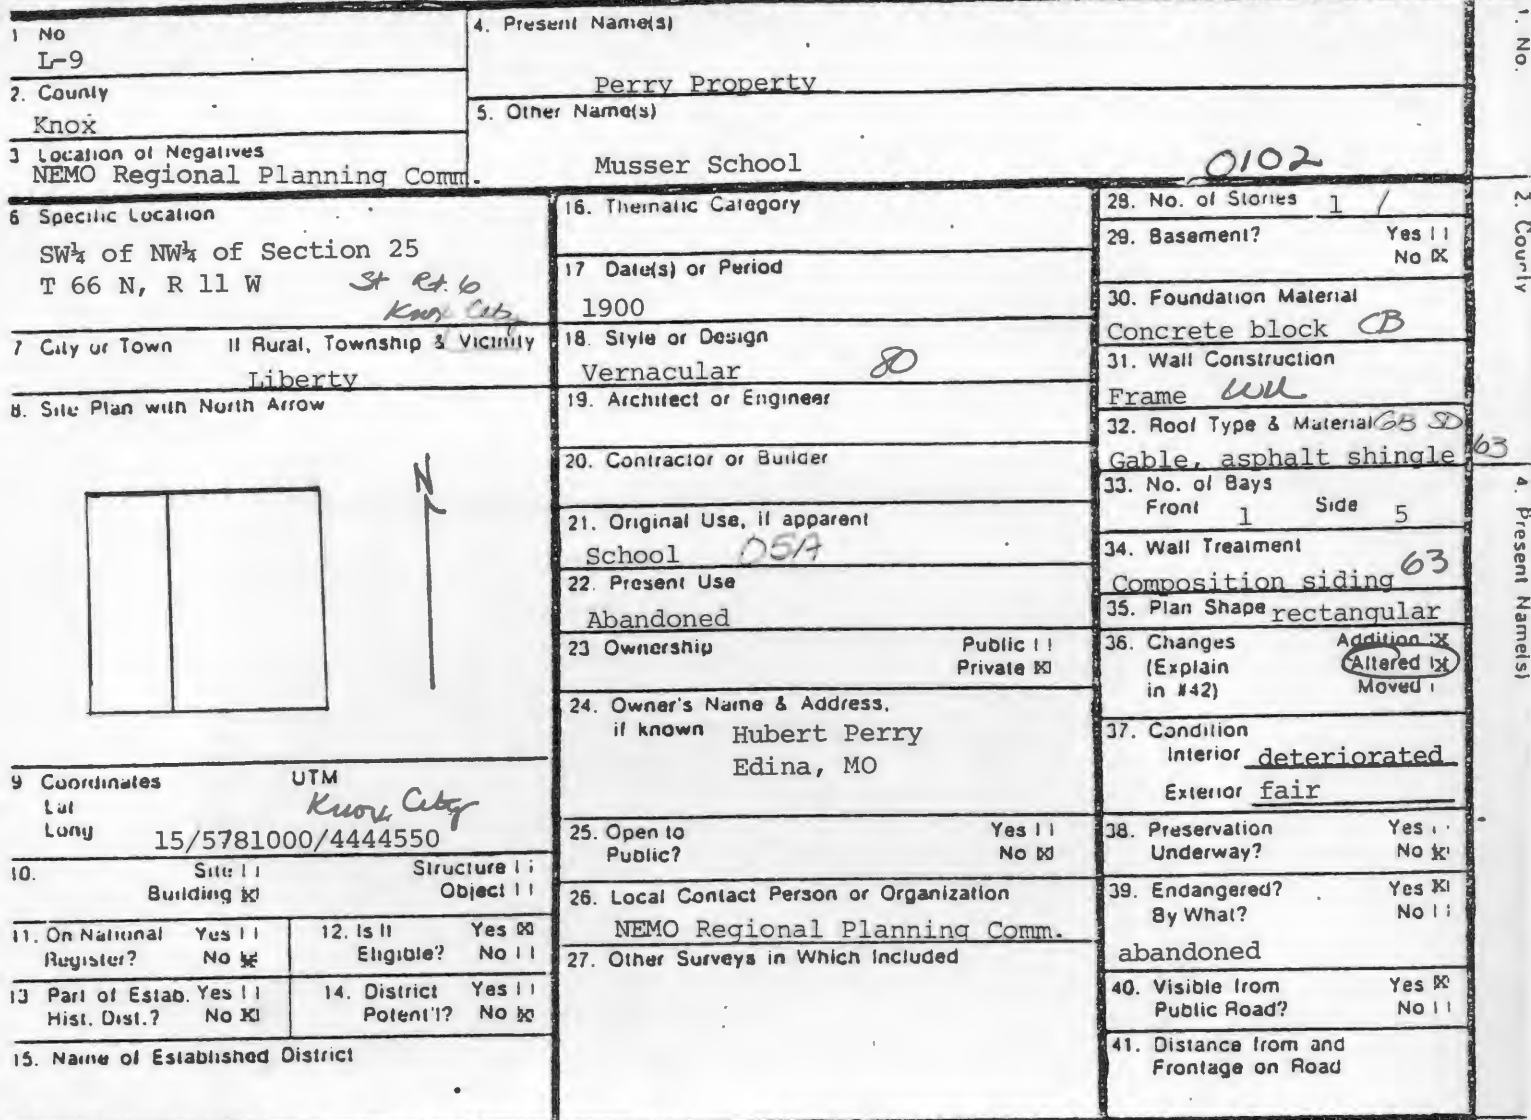 1 No
L-9
2. County
Knox
3 Location of Negatives
NEMO Regional Planning Comm.
4. Present Name(s)
Perry Property
5. Other Name(s)
Musser School
0102
6 Specific Location
SW¼ of NW¼ of Section 25
T 66 N, R 11 W
St Rt. 6
Knox City
7 City or Town If Rural, Township & Vicinity
Liberty
8. Site Plan with North Arrow
N
9 Coordinates UTM
Lat
Long
Knox City
15/5781000/4444550
10. Site Structure
Building X Object
11. On National Register? Yes No X
12. Is It Eligible? Yes X No
13 Part of Estab. Hist. Dist.? Yes No X
14. District Potent'l? Yes No X
15. Name of Established District
16. Thematic Category
17 Date(s) or Period
1900
18. Style or Design
Vernacular 80
19. Architect or Engineer
20. Contractor or Builder
21. Original Use, if apparent
School 05A
22. Present Use
Abandoned
23 Ownership Public
Private X
24. Owner's Name & Address,
if known Hubert Perry
Edina, MO
25. Open to Yes
Public? No X
26. Local Contact Person or Organization
NEMO Regional Planning Comm.
27. Other Surveys in Which Included
28. No. of Stories 1 /
29. Basement? Yes
No X
30. Foundation Material
Concrete block CB
31. Wall Construction
Frame
32. Roof Type & Material GB SD
Gable, asphalt shingle 63
33. No. of Bays
Front 1 Side 5
34. Wall Treatment
Composition siding 63
35. Plan Shape rectangular
36. Changes Addition X
(Explain Altered X
in #42) Moved
37. Condition
Interior deteriorated
Exterior fair
38. Preservation Yes
Underway? No X
39. Endangered? Yes X
By What? No
abandoned
40. Visible from Yes X
Public Road? No
41. Distance from and
Frontage on Road
1. No.
2. County
4. Present Name(s)